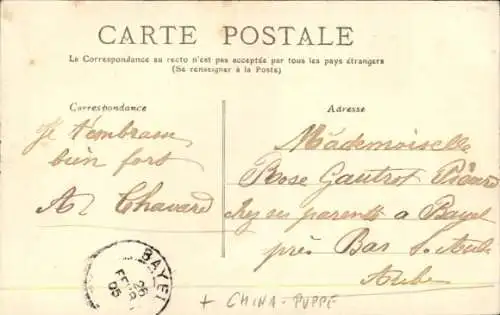 CARTE POSTALE
La Correspondance au recto n'est pas acceptée par tous les pays étrangers
(Se renseigner à la Poste)
Correspondance
Je t'embrasse
bien fort
Chavard
Adresse
Mademoiselle
Rose Gautrot
chez ses parents a Bayel
près Bar s. Aube
Aube
BAYEL
26
FEVR
05
+ CHINA-PUPPE